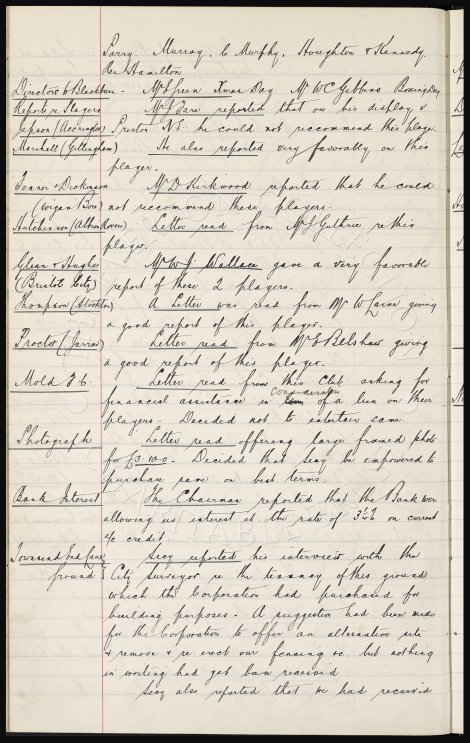 Parry. Murray, C Murphy, Houghton & Kennedy.
Rev Hamilton
Directors to Blackburn - Mr Green Xmas Day Mr W C Gibbins Boxing Day
Reports re Players Mr J Bare reported that on his display v
Jepson (Accrington) Preston N.E. he could not reccommend this player.
Marshall (Gillingham) He also reported very favorably on this
player.
Jenner & Dickinson Mr D Kirkwood reported that he could
(Wigan Boro) not reccommend these players.
Hutchinson (Albion Rovers) Letter read from Mr J Guthrie re this
player.
Glenn & Hughes Mr W J Wallace gave a very favorable
(Bristol City) report of these 2 players.
Thompson (Stockton) A Letter was read from Mr W Laine giving
a good report of this player.
Proctor (Jarrow) Letter read from Mr J Belshaw giving
a good report of this player.
Mold F C. Letter read from this Club asking for
financial assistance in consideration of a lien on their
players - Decided not to entertain same
Photograph Letter read offering large framed photo
for £3.10.0 - Decided that Secy be empowered to
purchase same on best terms.
Bank Interest The Chairman reported that the Bank were
allowing us interest at the rate of 3½% on current
a/c credit.
Townsend End Lane Secy reported his interview with the
Ground City Surveyor re the tenancy of this ground
which the Corporation had purchased for
building purposes. A suggestion had been made
for the Corporation to offer an alternative site
& remove & re erect our fencing &c, but nothing
in writing had yet been received
Secy also reported that we had received